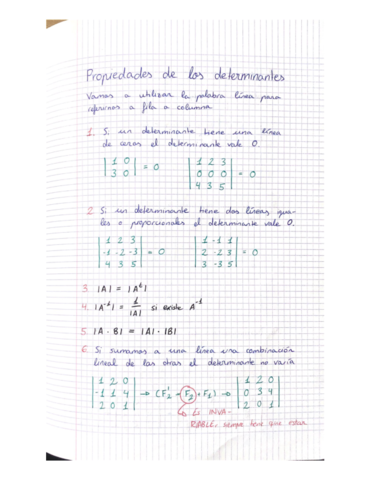 Propiedades de los determinantes
Vamos a utilizar la palabra línea para
referirnos a fila o columna.
1. Si un determinante tiene una línea
de ceros el determinante vale 0.
|1 0| = 0    |1 2 3|
|3 0|    |0 0 0| = 0
|4 3 5|
2. Si un determinante tiene dos líneas igua-
les o proporcionales el determinante vale 0.
|1 2 3|    |1 -1 1|
|-1 -2 -3| = 0    |2 -2 3| = 0
|4 3 5|    |3 -3 5|
3. |A| = |Aᵗ|
4. |A⁻¹| = 1/|A| si existe A⁻¹
5. |A · B| = |A| · |B|
6. Si sumamos a una línea una combinación
lineal de las otras el determinante no varía
|1 2 0|    |1 2 0|
|-1 1 4| → (F₂' → F₂ + F₁) → |0 3 4|
|2 0 1|    |2 0 1|
↳ Es INVA-
RABLE, siempre tiene que estar